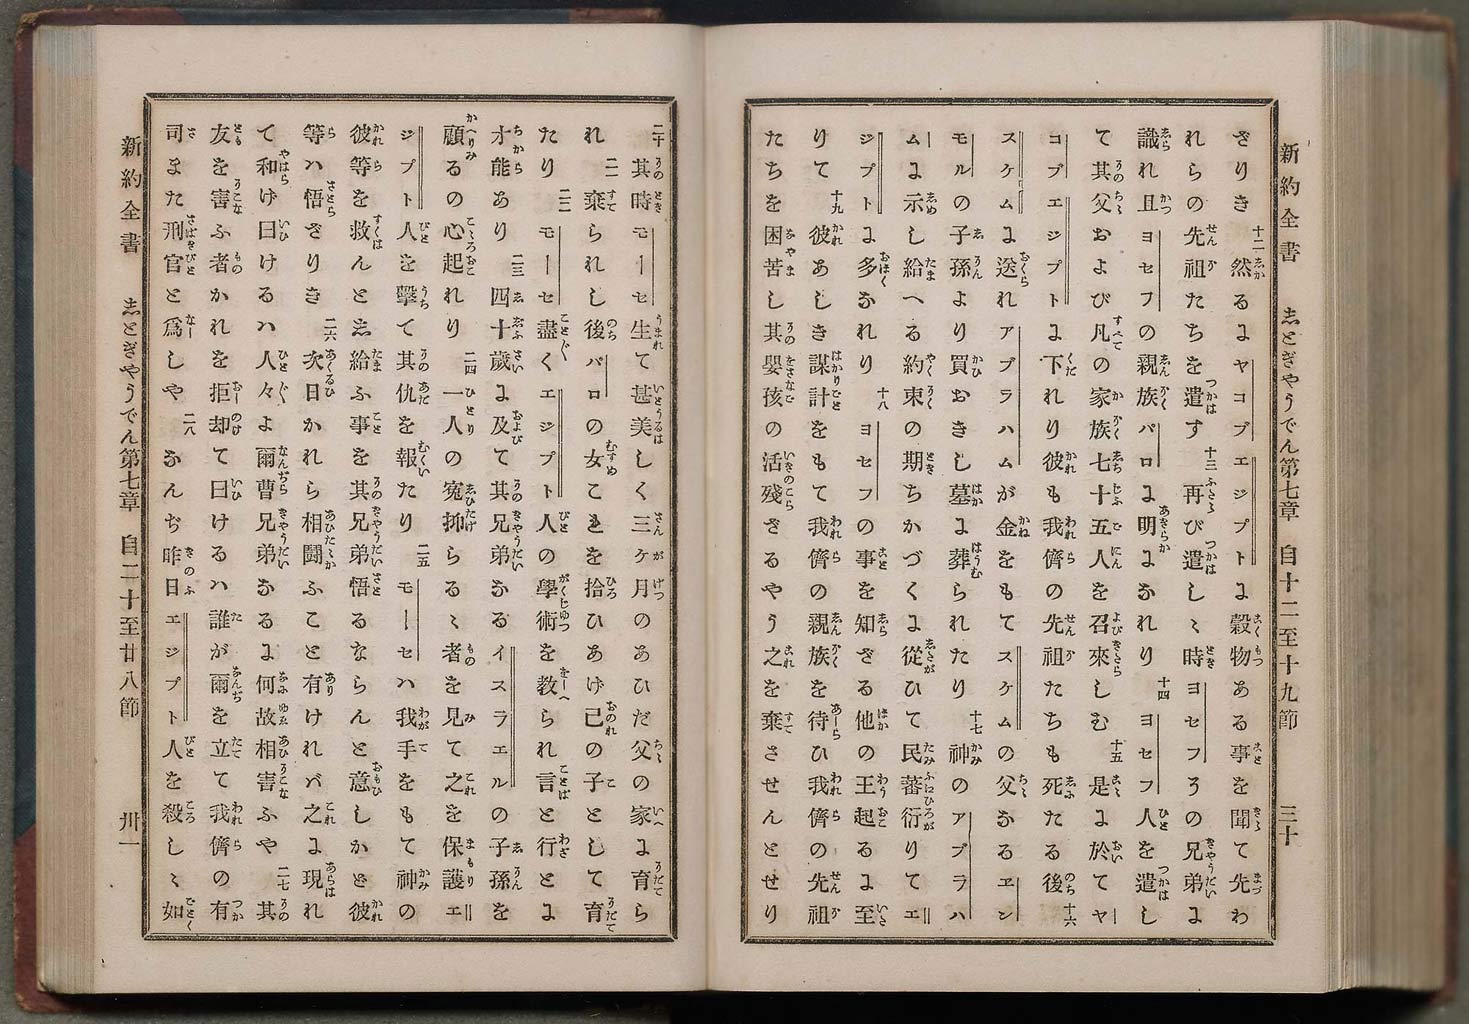 新約全書　志とぎやうでん第七章　自十二至十九節　三十
ざりき十二然るよヤコブエジプトよ穀物ある事を聞て先わ
れらの先祖たちを遣す十三再び遣しゝ時ヨセフ其の兄弟よ
識れ且ヨセフの親族パロよ明よなれり十四ヨセフ人を遣し
て其父および凡の家族七十五人を召來しむ十五是よ於てヤ
コブエジプトよ下れり彼も我儕の先祖たちも死たる後十六
スケムよ送れアブラハムが金をもてスケムの父なるエン
モルの子孫より買おきし墓よ葬られたり十七神のアブラハ
ムよ示し給へる約束の期ちかづくよ從ひて民蕃衍りてエ
ジプトよ多なれり十八ヨセフの事を知ざる他の王起るよ至
りて十九彼あしき謀計をもて我儕の親族を待ひ我儕の先祖
たちを困苦し其嬰孩の活殘ざるやう之を棄させんとせり
二十其時モーセ生て甚美しく三ケ月のあひだ父の家よ育ら
れ二一棄られし後パロの女これを拾ひあげ己の子として育
たり二二モーセ盡くエジプト人の學術を教られ言と行とよ
才能あり二三四十歲よ及て其兄弟なるイスラエルの子孫を
顧るの心起れり二四一人の寃抑らるゝ者を見て之を保護エ
ジプト人を擊て其仇を報たり二五モーセハ我手をもて神の
彼等を救んと志給ふ事を其兄弟悟るならんと意しかど彼
等ハ悟ざりき二六次日かれら相鬪ふこと有ければ之よ現れ
て和げ曰けるハ人々よ爾曹兄弟なるよ何故相害ふや二七其
友を害ふ者かれを拒却て曰けるハ誰が爾を立て我儕の有
司また刑官と爲しや二八なんぢ昨日エジプト人を殺しゝ如
新約全書　志とぎやうでん第七章　自二十至廿八節　卅一